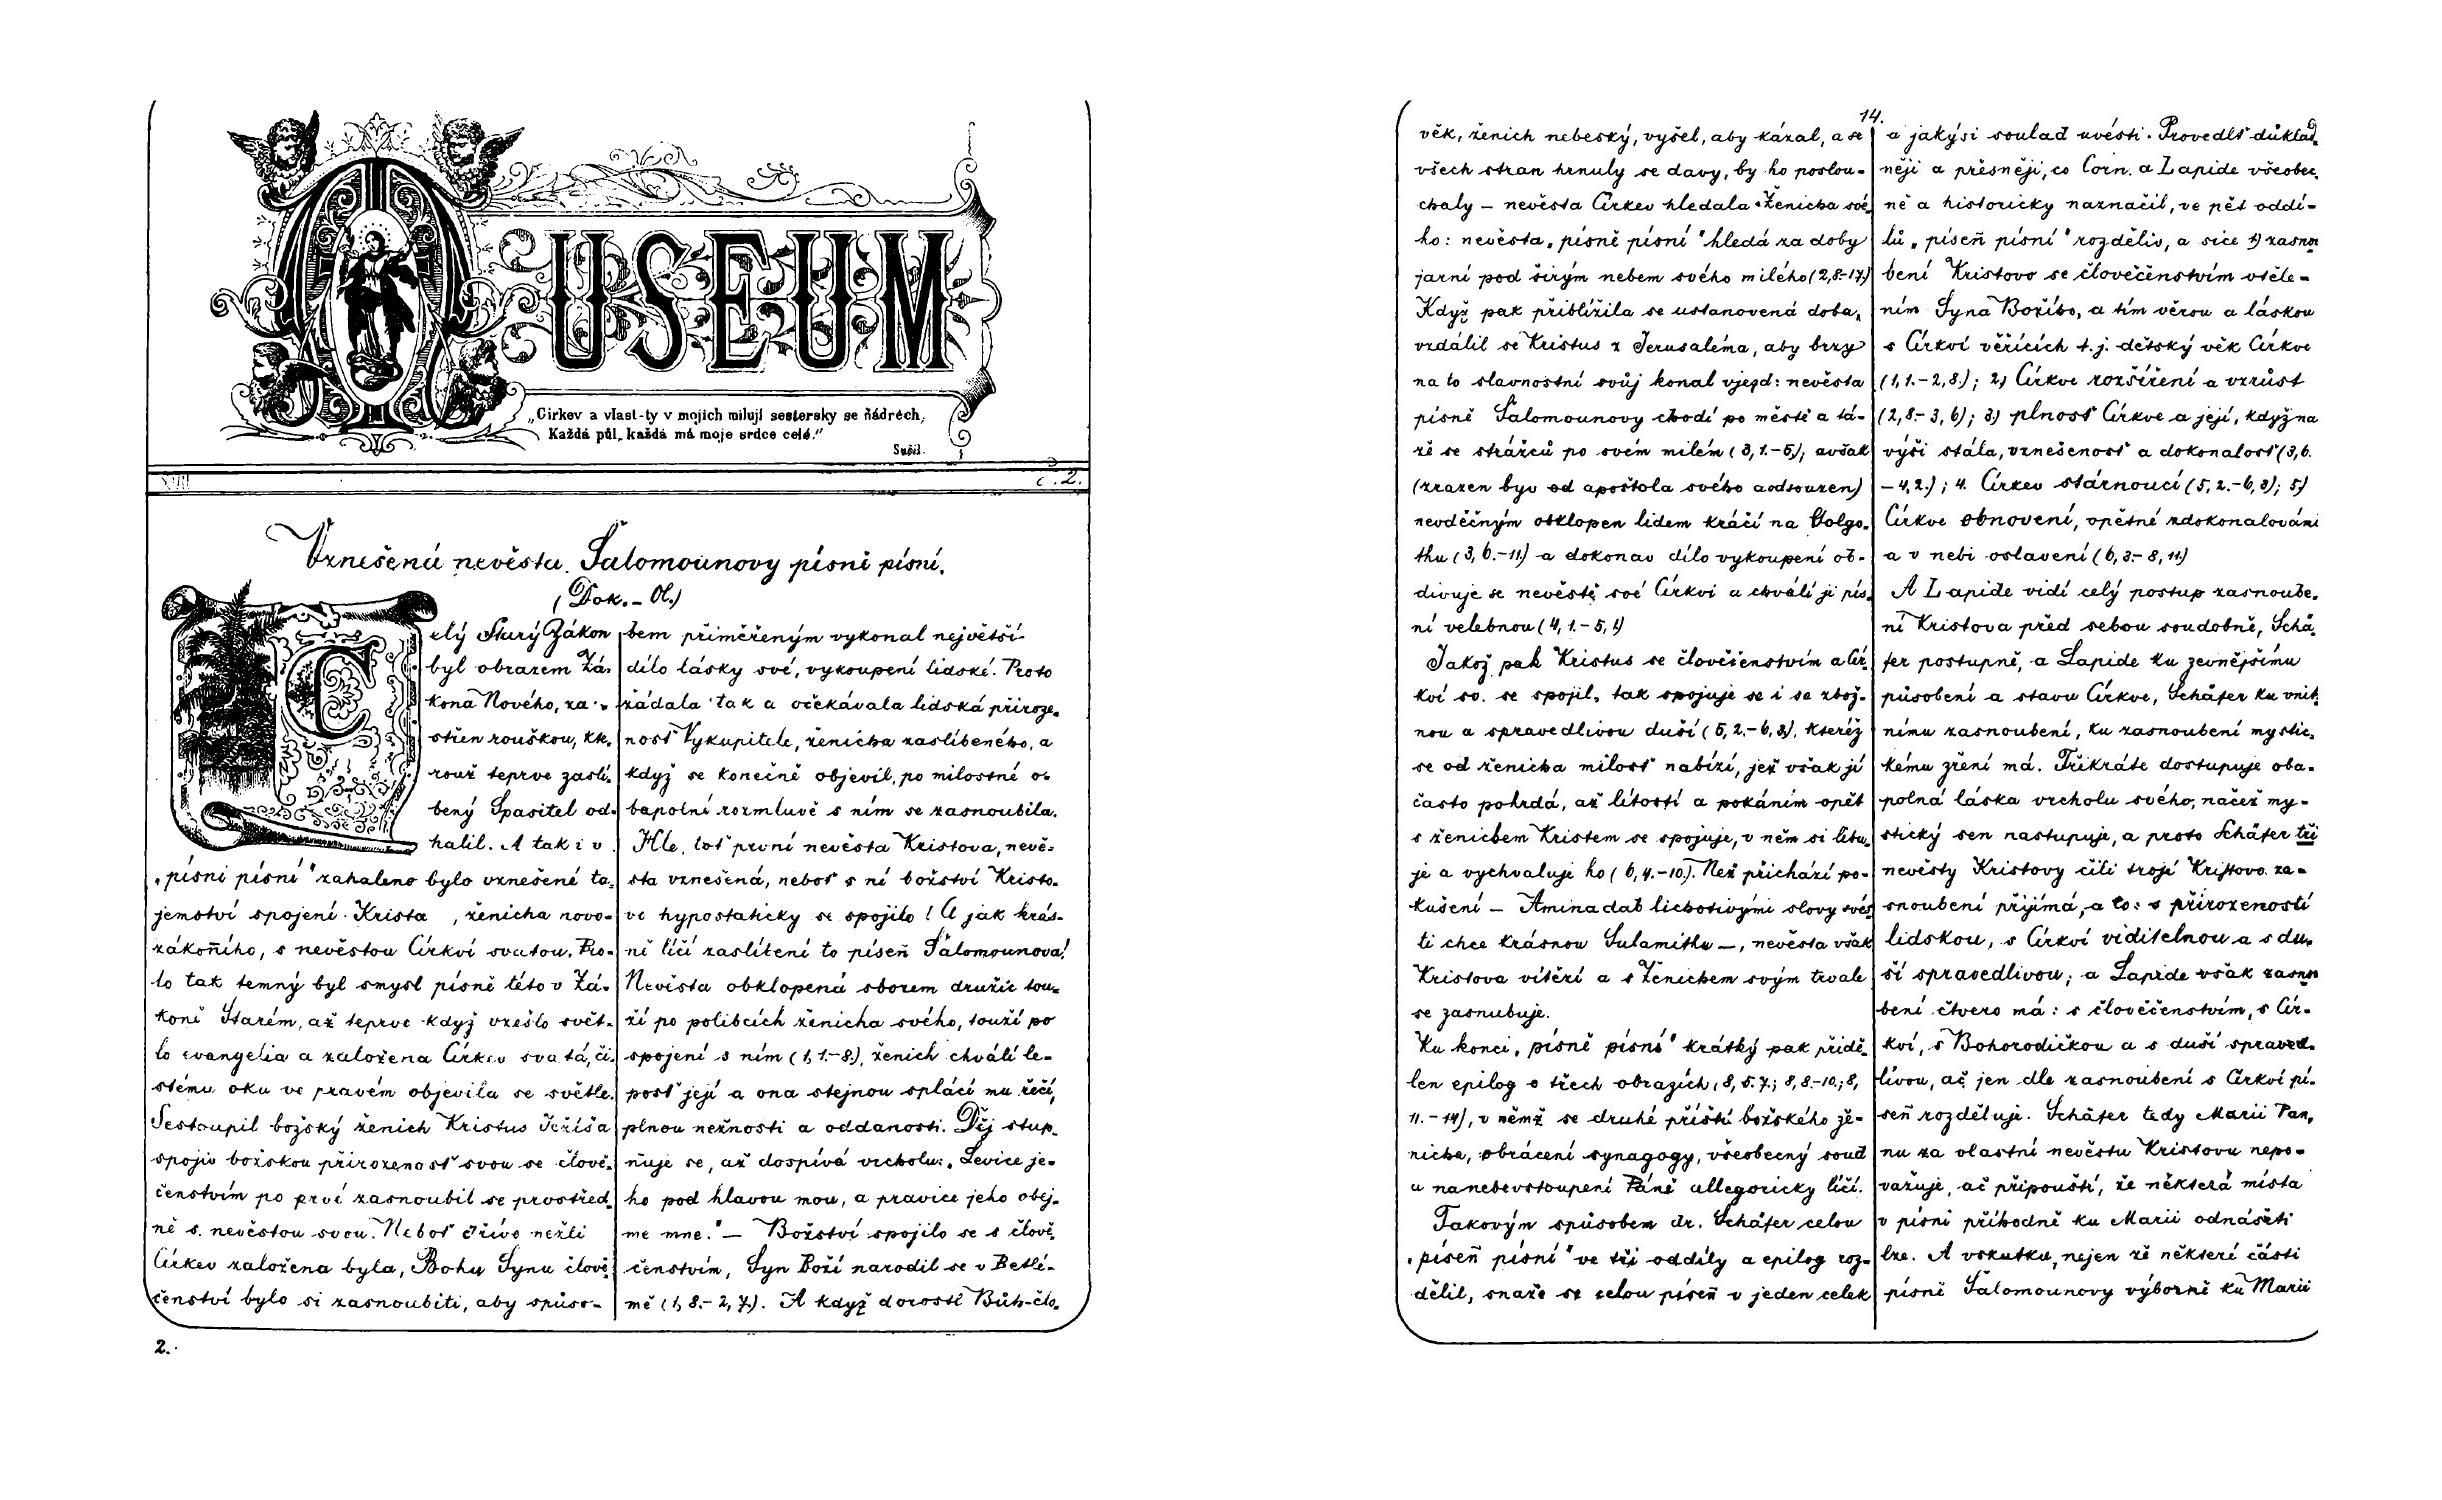 MUSEUM
„Církev a vlast-ty v mojich milují sestersky se ňádrech,
Každá půl, každá má moje srdce celé."
Sušil.
XVIII č. 2.
Vznešená nevěsta Šalomounovy písně písní.
(Dok. - Ol.)
Celý Starý Zákon
byl obrazem Zá-
kona Nového, za-
střen rouškou, kte-
rouž teprve zaslí-
bený Spasitel od-
halil. A tak i v
„písni písní" zahaleno bylo vznešené ta-
jemství spojení Krista, ženicha novo-
zákonního, s nevěstou Církví svatou. Pro-
to tak temný byl smysl písně této v Zá-
koně Starém, až teprve když vzešlo svět-
lo evangelia a založena Církev svatá, či-
stému oku ve pravém objevila se světle.
Sestoupil božský ženich Kristus Ježíš a
spojiv božskou přirozenosť svou se člově-
čenstvím po prvé zasnoubil se prostřed-
ně s nevěstou svou. Neboť dříve nežli
Církev založena byla, Bohu Synu člově-
čenství bylo si zasnoubiti, aby způso-
bem přiměřeným vykonal největší
dílo lásky své, vykoupení lidské. Proto
žádala tak a očekávala lidská přiroze-
nosť Vykupitele, ženicha zaslíbeného, a
když se konečně objevil, po milostné o-
bapolní rozmluvě s ním se zasnoubila.
Hle, toť první nevěsta Kristova, nevě-
sta vznešená, neboť s ní božství Kristo-
vo hypostaticky se spojilo! A jak krás-
ně líčí zaslíbení to píseň Šalomounova!
Nevěsta obklopená sborem družic tou-
ží po polibcích ženicha svého, touží po
spojení s ním (1,1.-8.), ženich chválí le-
posť její a ona stejnou splácí mu řečí,
plnou nežnosti a oddanosti. Děj stup-
ňuje se, až dospívá vrcholu: „Levice je-
ho pod hlavou mou, a pravice jeho obej-
me mne." — Božství spojilo se s člově-
čenstvím, Syn Boží narodil se v Betlé-
mě (1, 8.- 2, 7.). A když dorostl Bůh-člo-
2.
14.
věk, ženich nebeský, vyšel, aby kázal, a se
všech stran hrnuly se davy, by ho poslou-
chaly — nevěsta Církev hledala Ženicha své-
ho: nevěsta „písně písní" hledá za doby
jarní pod širým nebem svého milého (2,8.-17.)
Když pak přiblížila se ustanovená doba,
vzdálil se Kristus z Jerusaléma, aby brzy
na to slavnostní svůj konal vjezd: nevěsta
písně Šalomounovy chodí po městě a tá-
že se strážců po svém milém (3,1.-5.), avšak
(zrazen byv od apoštola svého a odsouzen)
nevděčným obklopen lidem kráčí na Golgo-
thu (3, 6.-11.) a dokonav dílo vykoupení ob-
divuje se nevěstě své Církvi a chválí ji pís-
ní velebnou (4, 1.- 5, 1.)
Jakož pak Kristus se člověčenstvím a Cír-
kví sv. se spojil, tak spojuje se i se zbož-
nou a spravedlivou duší (5, 2.- 6, 3.), kteréž
se od ženicha milosť nabízí, jež však jí
často pohrdá, až lítostí a pokáním opět
s ženichem Kristem se spojuje, v něm si libu-
je a vychvaluje ho (6, 4.-10.). Než přichází po-
kušení — Aminadab lichotivými slovy svés-
ti chce krásnou Sulamitku —, nevěsta však
Kristova vítězí a s Ženichem svým trvale
se zasnubuje.
Ku konci „písně písní" krátký pak přidě-
len epilog o třech obrazích (8, 5.7.; 8, 8.-10.; 8,
11.-14), v němž se druhé příští božského že-
nicha, obrácení synagogy, všeobecný soud
a nanebevstoupení Páně allegoricky líčí.
Takovým spůsobem dr. Schäfer celou
„píseň písní" ve tři oddíly a epilog roz-
dělil, snaže se celou píseň v jeden celek
a jakýsi soulad uvésti. Provedlť důklad-
něji a přesněji, co Corn. a Lapide všeobec-
ně a historicky naznačil, ve pět oddí-
lů „píseň písní" rozděliv, a sice 1) zasnou-
bení Kristovo se člověčenstvím vtěle-
ním Syna Božího, a tím věrou a láskou
s Církví věřících t.j. dětský věk Církve
(1, 1.- 2, 8.); 2) Církve rozšíření a vzrůst
(2, 8.- 3, 6); 3) plnosť Církve a její, když na
výši stála, vznešenosť a dokonalosť (3,6.
- 4, 2.); 4. Církev stárnoucí (5, 2.- 6, 3); 5)
Církve obnovení, opětné zdokonalování
a v nebi oslavení (6, 3.- 8, 11.)
A Lapide vidí celý postup zasnoube-
ní Kristova před sebou soudobně, Schä-
fer postupně, a Lapide ku zevnějšímu
působení a stavu Církve, Schäfer ku vnit-
nímu zasnoubení, ku zasnoubení mystic-
kému zření má. Třikráte dostupuje oba-
polná láska vrcholu svého, načež my-
stický sen nastupuje, a proto Schäfer tři
nevěsty Kristovy čili trojí Kristovo za-
snoubení přijímá, a to: s přirozeností
lidskou, s Církví viditelnou a s du-
ší spravedlivou; a Lapide však zasnou-
bení čtvero má: s člověčenstvím, s Cír-
kví, s Bohorodičkou a s duší spraved-
livou, ač jen dle zasnoubení s Církví pí-
seň rozděluje. Schäfer tedy Marii Pan-
nu za vlastní nevěstu Kristovu nepo-
važuje, ač připouští, že některá místa
v písni příhodně ku Marii odnášeti
lze. A vskutku, nejen že některé části
písně Šalomounovy výborně ku Marii